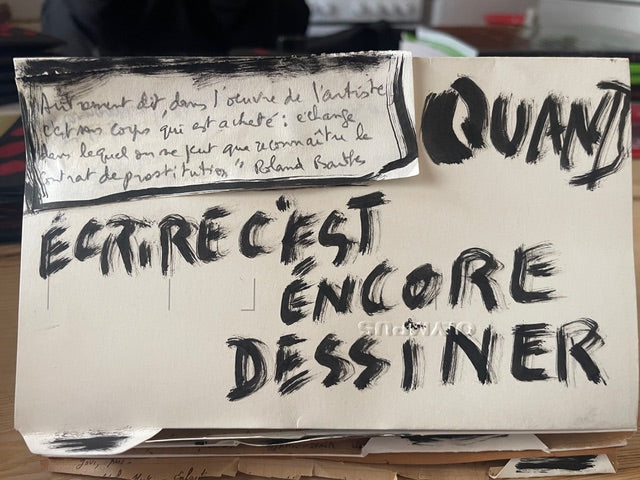 Autrement dit, dans l'oeuvre de l'artiste
c'est son corps qui est acheté : échange
dans lequel on ne peut que reconnaître le
contrat de prostitution" Roland Barthes
QUAND
ÉCRIRE C'EST
ENCORE
DESSINER
OLYMPUS